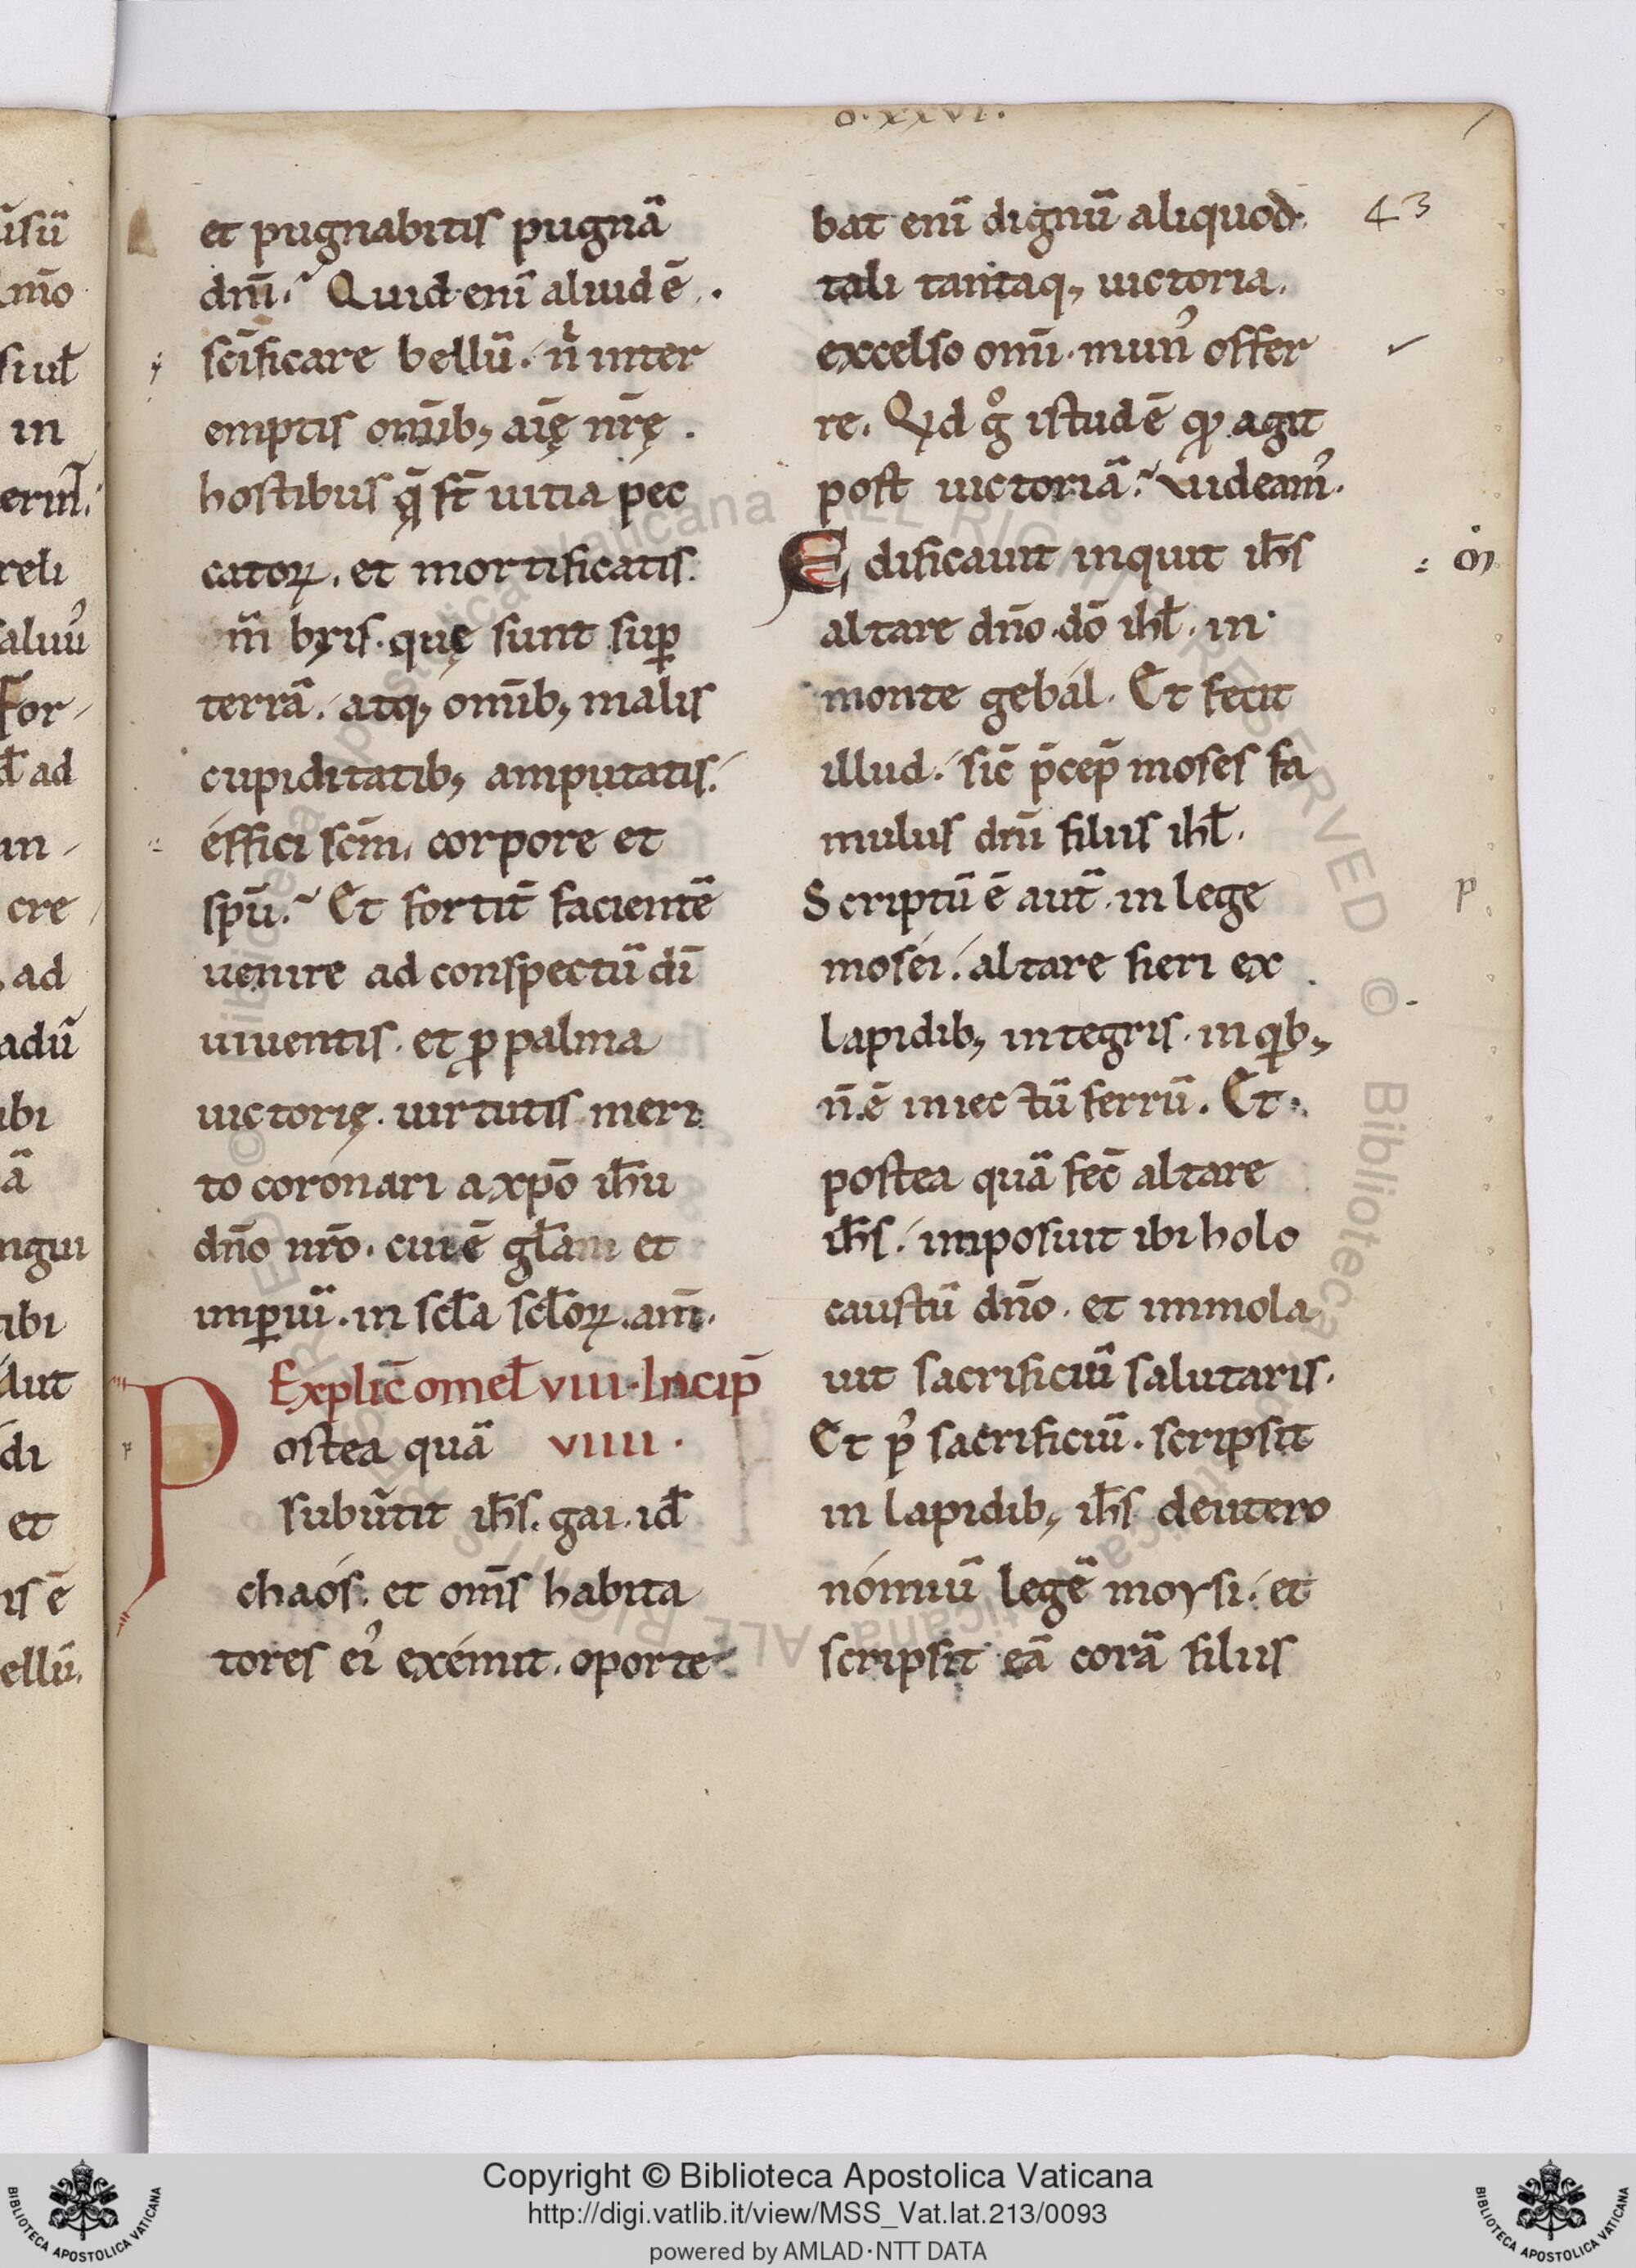 o. xxvi.
43
et pugnabitis pugnā
dnī. Quid enī aliud ē.
scīficare bellū. n̄ inter
emptis omīb; aīę nr̄ę.
hostibus q̨̄ st̄ uitia pec
catoꝝ. et mortificatis.
m̄ bris. quę sunt suꝑ
terrā. atq; omīb; malis
cupiditatib; amputatis.
effici scm̄. corpore et
spū. Et fortit̄ facientē
uenire ad conspectū dī
uiuentis. et ꝓ palma
uictorię. uirtutis meri
to coronari a xpō ihū
dn̄o nr̄o. cui ē gl̄am et
imꝑiū. in scl̄a scl̄oꝝ. am̄.
Explic̄ omel̄ viii. Incip̄
viiii.
Postea quā
subūtit ih̄s. gai. id̄
chaos. et om̄s habita
tores ei᾽ exemit. oporte
bat enī dignū aliquod
tali tantaq; uictoria.
excelso omī. mun᾽ offer
re. Qd gͦ istud ē qđ agit
post uictoriā. uideam᾽.
Edificauit inquit ih̄s
altare dn̄o. dō ihl̄. in
monte gebal. Et fecit
illud. sic̄ p̄cep̄ moses fa
mulus dnī filiis ihl̄.
Scriptū ē aut̄. in lege
mosei. altare fieri ex
lapidib; integris. in qib;
n̄. ē iniectū ferrū. Et
postea quā fec̄ altare
ih̄s. imposuit ibi holo
caustū dn̄o. et immola
uit sacrificiū salutaris.
Et p᾽ sacrificiū. scripsit
in lapidib; ih̄s deutero
nomiū legē moysi. et
scripsit eā corā filiis
Copyright © Biblioteca Apostolica Vaticana
http://digi.vatlib.it/view/MSS_Vat.lat.213/0093
powered by AMLAD·NTT DATA
BIBLIOTECA APOSTOLICA VATICANA
BIBLIOTECA APOSTOLICA VATICANA